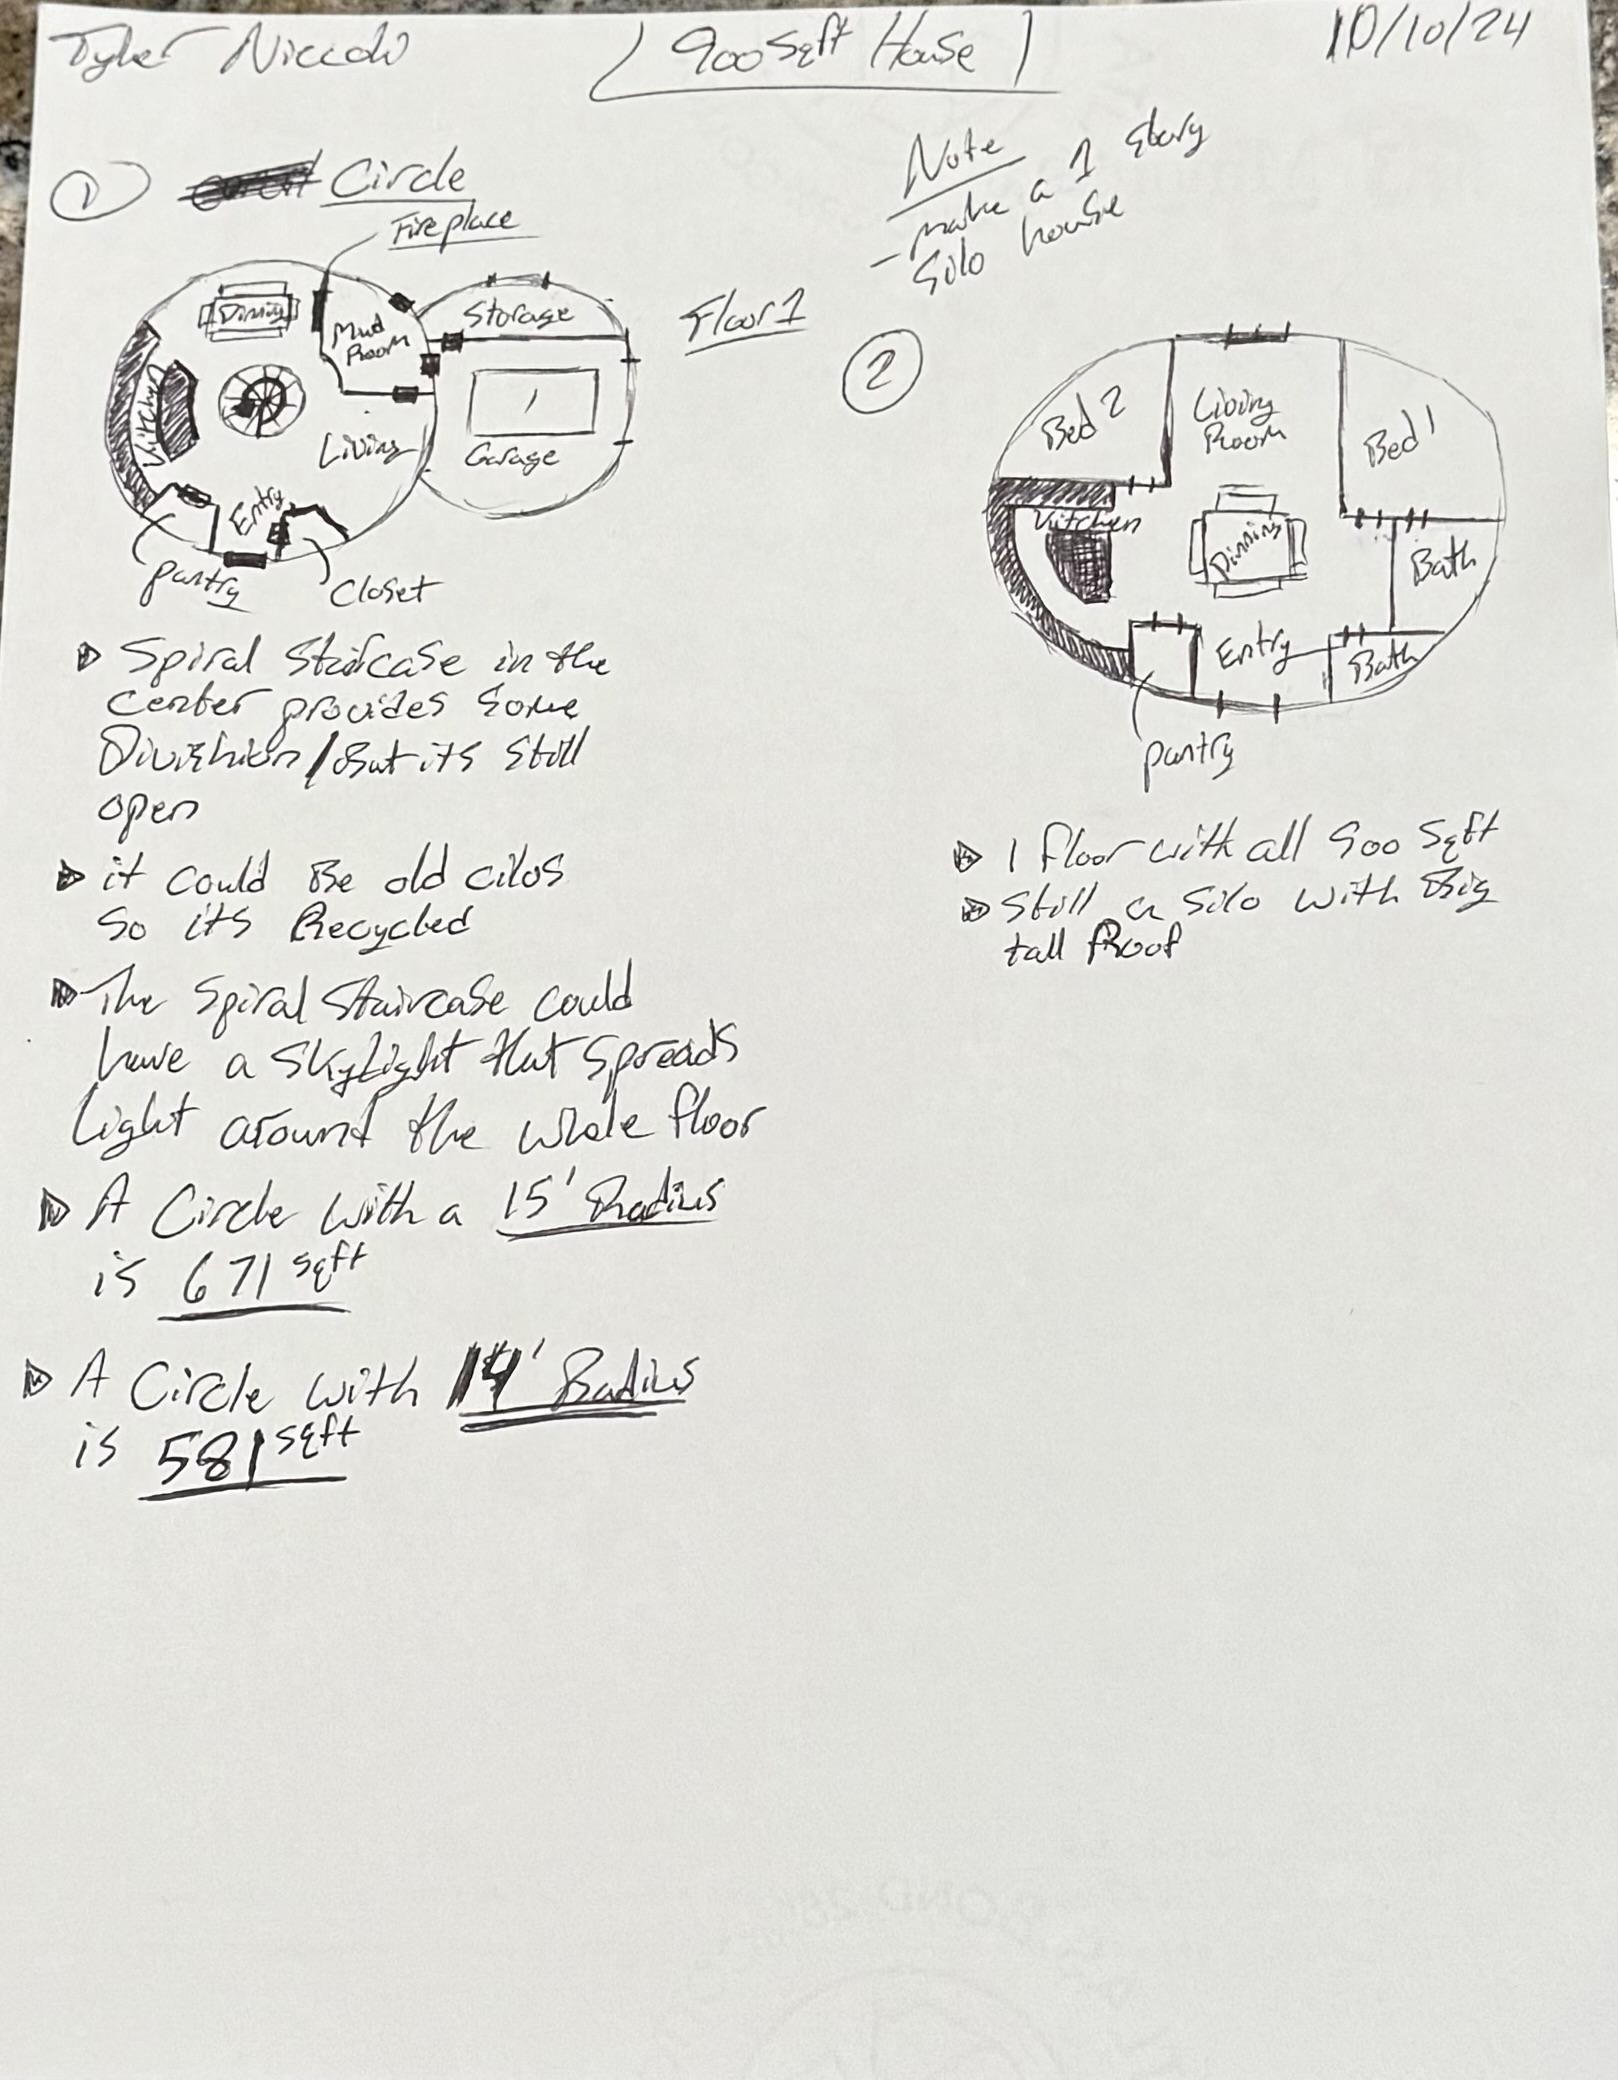 Tyler Niccoli
900 sqft House
10/10/24
Note
- make a 1 story
Silo house
1
Circle
Fireplace
Dinning
Mud
Room
Storage
Floor 1
Kitchen
Living
Garage
Entry
pantry
Closet
▷ Spiral Staircase in the
center provides some
Divishion / But its still
open
▷ it could Be old cilos
so its Recycled
▷ The Spiral Staircase could
have a Skylight that spreads
Light around the whole floor
▷ A Circle with a 15' Radius
is 671 sqft
▷ A Circle with 14' Radius
is 581 sqft
2
Bed 2
Living
Room
Bed 1
Kitchen
Dinning
Bath
Entry
Bath
pantry
▷ 1 floor with all 900 sqft
▷ Still a Silo with Big
tall Roof